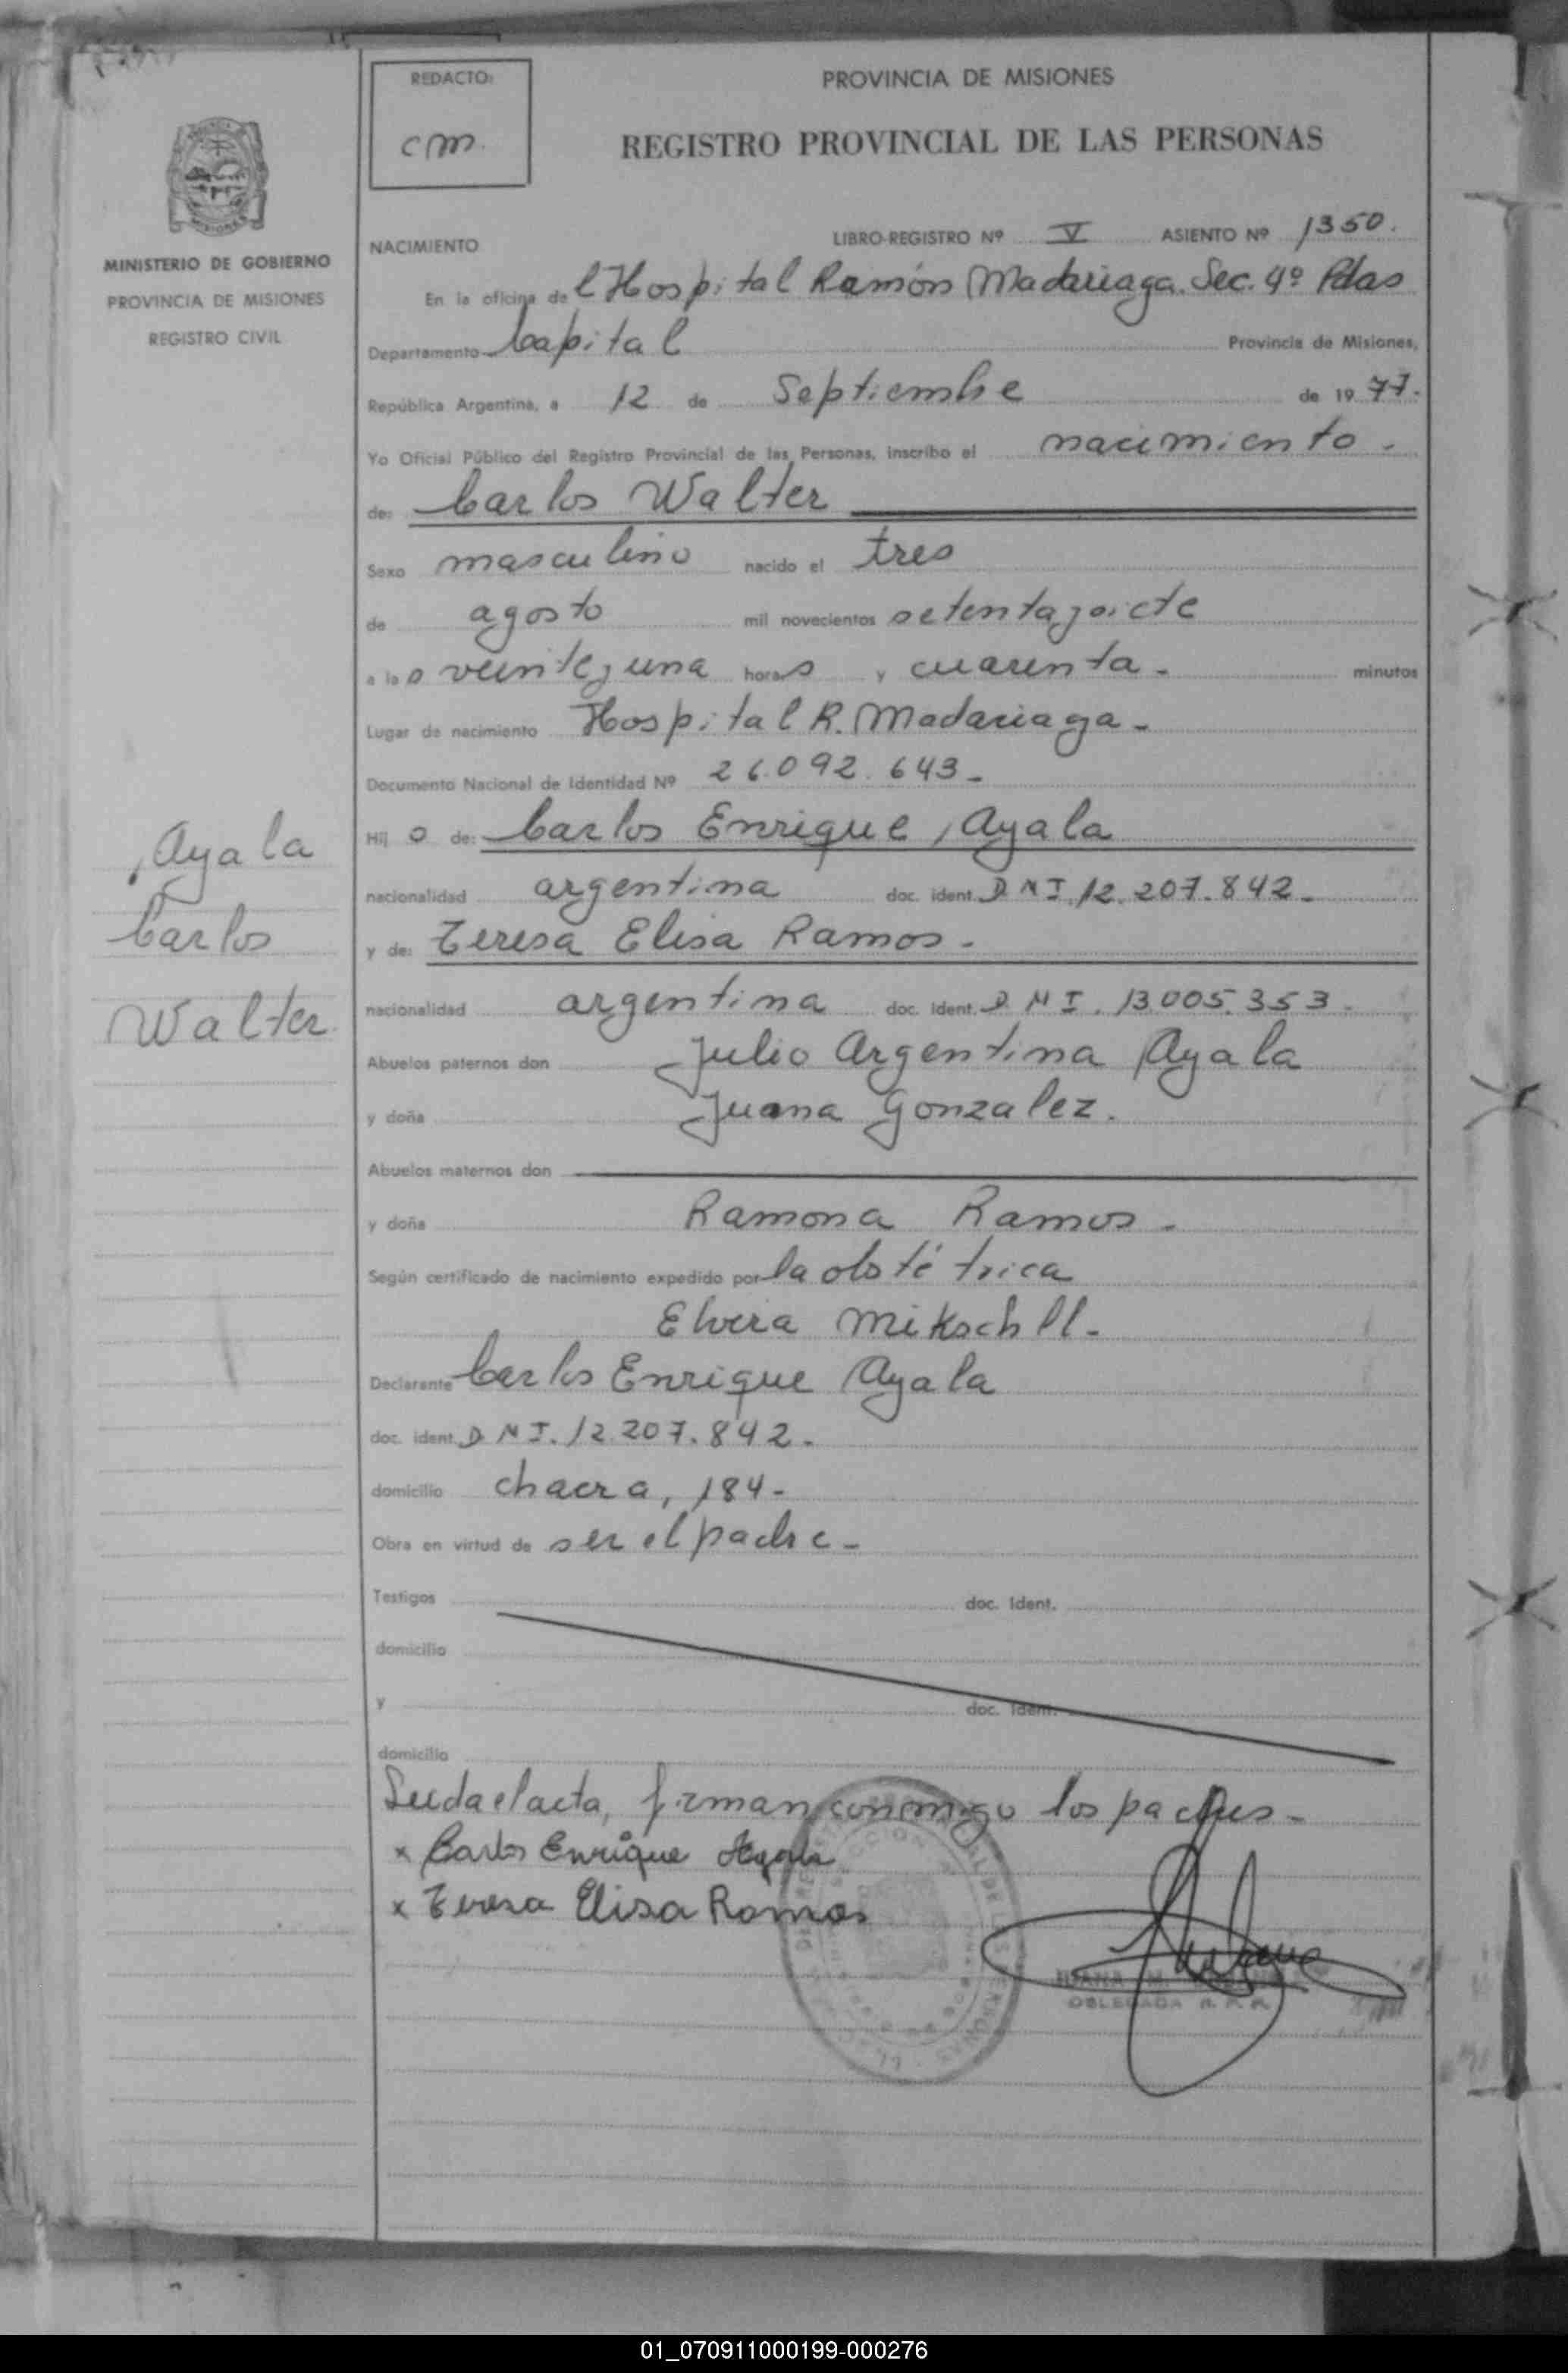 REDACTO:
cm.
PROVINCIA DE MISIONES
REGISTRO PROVINCIAL DE LAS PERSONAS
MISIONES
MINISTERIO DE GOBIERNO
PROVINCIA DE MISIONES
REGISTRO CIVIL
Ayala
Carlos
Walter
NACIMIENTO
LIBRO-REGISTRO Nº V ASIENTO Nº 1350.
En la oficina del Hospital Ramón Madariaga. Sec. 4º Pdas
Departamento Capital Provincia de Misiones,
República Argentina, a 12 de Septiembre de 1977.
Yo Oficial Público del Registro Provincial de las Personas, inscribo el nacimiento.
de: Carlos Walter
Sexo masculino nacido el tres
de agosto mil novecientos setentaysiete
a las veinteyuna horas y cuarenta. minutos
Lugar de nacimiento Hospital R. Madariaga-
Documento Nacional de Identidad Nº 26.092.643-
Hijo de: Carlos Enrique, Ayala
nacionalidad argentina doc. ident. DNI. 12.207.842.
y de: Teresa Elisa Ramos.
nacionalidad argentina doc. ident. DNI. 13.005.353.
Abuelos paternos don Julio Argentina Ayala
y doña Juana Gonzalez.
Abuelos maternos don
y doña Ramona Ramos.
Según certificado de nacimiento expedido por la obstétrica
Elvira
Declarante Carlos Enrique Ayala
doc. ident. DNI. 12.207.842.
domicilio chacra, 184-
Obra en virtud de ser el padre-
Testigos doc. Ident.
domicilio
y doc. Ident.
domicilio
Leida el acta, firman conmigo los padres-
x Carlos Enrique Ayala
x Teresa Elisa Ramos
JUANA M.
DELEGADA R. P. P.
01_070911000199-000276